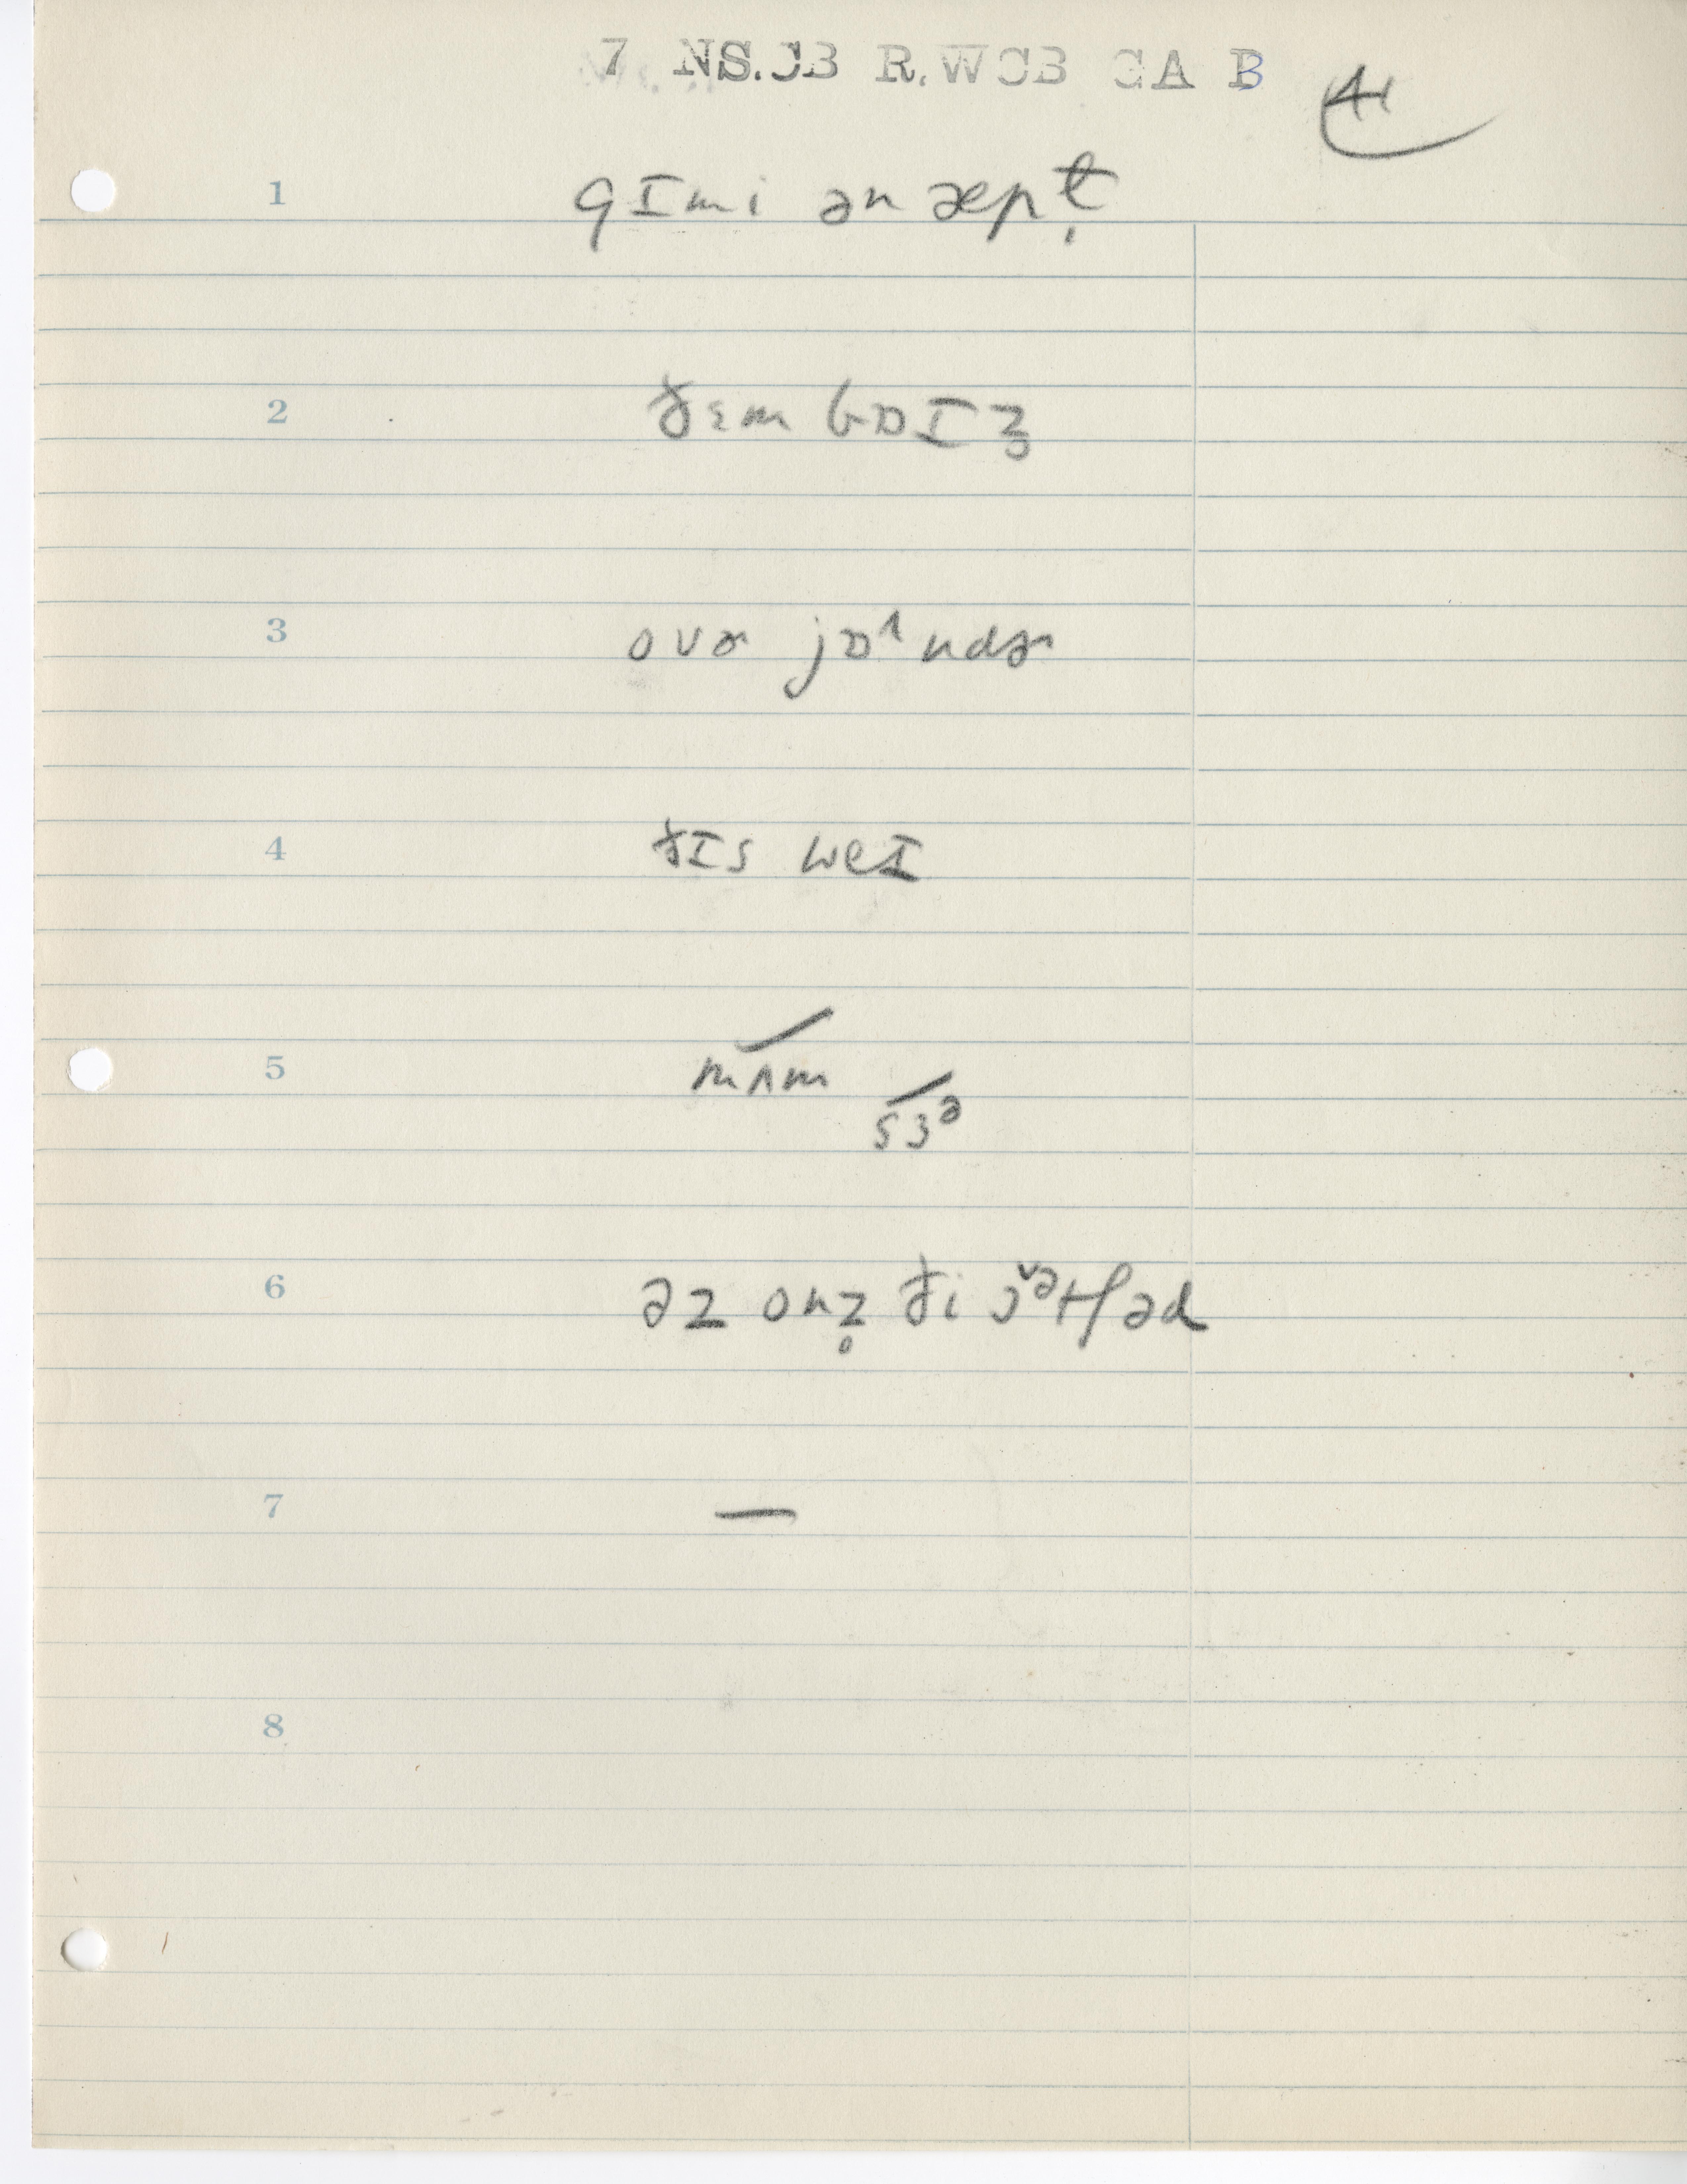 7 NS.CB R.WCB GA B
41
1 gɪmi ən æpt̩
2 ðɛm bɒɪz̥
3 ovɚ jɒ^ndɚ
4 ðɪs weɪ
5 mʌm
sɜᵊ
6 əz onz̥ ði ɔ̌ᵊtʃəd
7 —
8